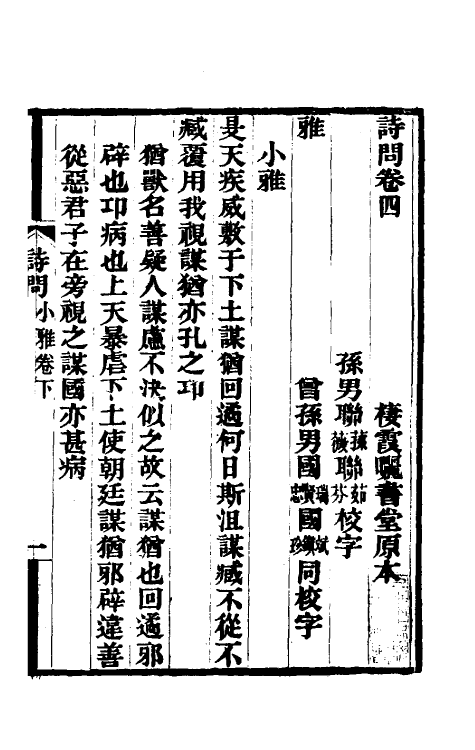 詩問卷四
棲霞曬書堂原本
孫男聯蓀薇聯茹芬校字
曾孫男國瑞寶忠國斌鎮珍同校字
雅
小雅
旻天疾威敷于下土謀猶回遹何日斯沮謀臧不從不
臧覆用我視謀猶亦孔之卭
猶獸名善疑人謀慮不決似之故云謀猶也回遹邪
辟也卭病也上天暴虐下土使朝廷謀猶邪辟違善
從惡君子在旁視之謀國亦甚病
詩問 小雅卷下
一